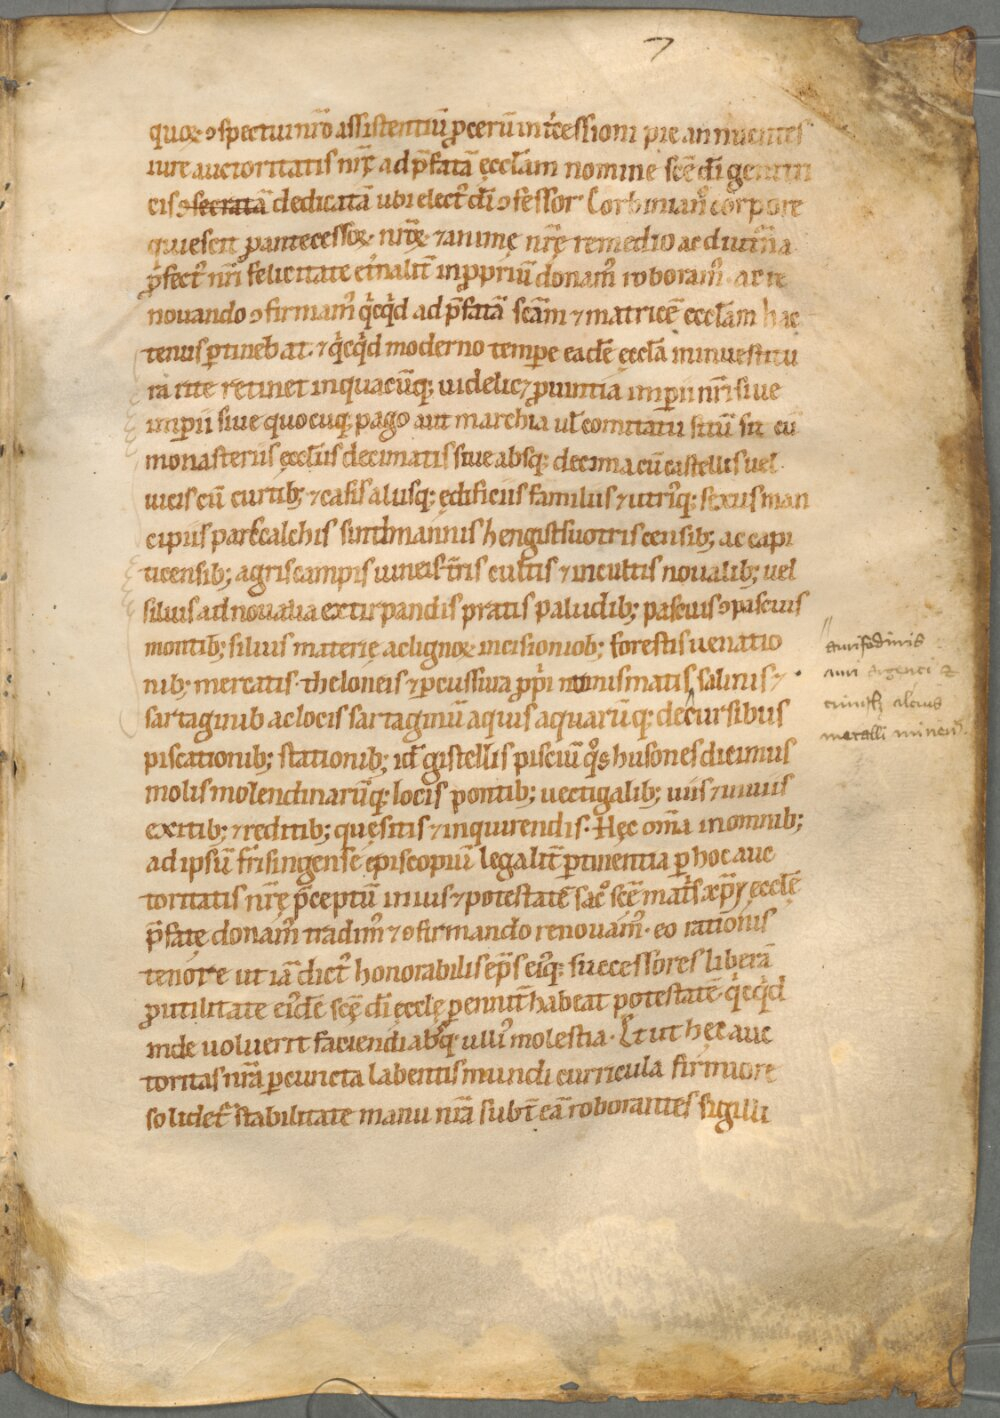 7
quoꝝ ↄspectui nr̄o assistentiū ꝓcerū int̄cessioni pie annuentes
iure auctoritatis nr̄ę ad p̄fatā ęccƚam nomine scē dī genitri
cis ↄsecratā dedicatā ubi elect᷒ dī ↄfessor Corbinian᷒ corpore
quiescit ꝓ antecessoꝝ nr̄oꝝ ⁊ animę nr̄ę remedio ac diutna
ꝓfect᷒ nr̄i felicitate et̄nalit̄ in ꝓpriū donam᷒ roboram᷒ ac re
nouando ↄfirmam᷒ qͥcqͥd ad p̄fatā scām ⁊ matricē eccƚam hac
tenus ꝑtinebat. ⁊ qͥcqͥd moderno tempe eadē ęccƚa in inuestitu
ra rite retinet in quacūq; uidelic⁊ ꝓuintia impii nr̄i siue
impii siue quocuq; pago aut marchia uƚ comitatu sitū sit cū
monasteriis ęccƚiis decimatis siue absq; decima cū castellis uel
uicis cū curtib; ⁊ casis aliisq; ędificiis familiis ⁊ utriꝰq; sexus man
cipiis parscalchis sindmannis hengistfuotris censib; ac capi
ticensib; agris campis uineis t̄ris cultis ⁊ incultis noualib; uel
siluis ad noualia extirpandis pratis paludib; pascuis ↄpascuis
montib; siluis materię ac lignoꝝ incisioniob; forestis uenatio
nib; mercatis. theloneis ⁊ ꝑcussura ꝓpͥi monismatis salinis ⁊
sartaginib ac locis sartaginū aquis aquarūq; decursibus
piscationib; stationib; id ē gistellis pisciū qͦs husones dicimus
molis molendinarūq; locis pontib; uectigalib; uiis ⁊ inuiis
exitib; ⁊ reditib; quęsitis ⁊ inquirendis. Hęc om̄a in omnib;
ad ipsū frisingense ępiscopiū legalit̄ ꝑtinentia ꝑ hoc auc
toritatis nr̄ę p̄ceptū in ius ⁊ potestatē sac᷒ scē mat̄s xp̄i ęccƚę
p̄fatę donam᷒ tradim᷒ ⁊ ↄfirmando renouam᷒. eo rationis
tenore ut iā dict᷒ honorabilis ep̄s eiꝰq; successores liberā
ꝓ utilitate eiꝰdē scę dī ęccƚę ꝑennit̄ habeat potestatē qͥcqͥd
inde uoluerit faciendi absq; ulliꝰ molestia. Et ut hęc auc
toritas nr̄a ꝑ cuncta labentis mundi curricula firmiore
solidet᷑ stabilitate manu nr̄a subt̄ eā roborantes sigilli
aurifodinis
auri argenti &
cuiusq; alcius
metalli miner